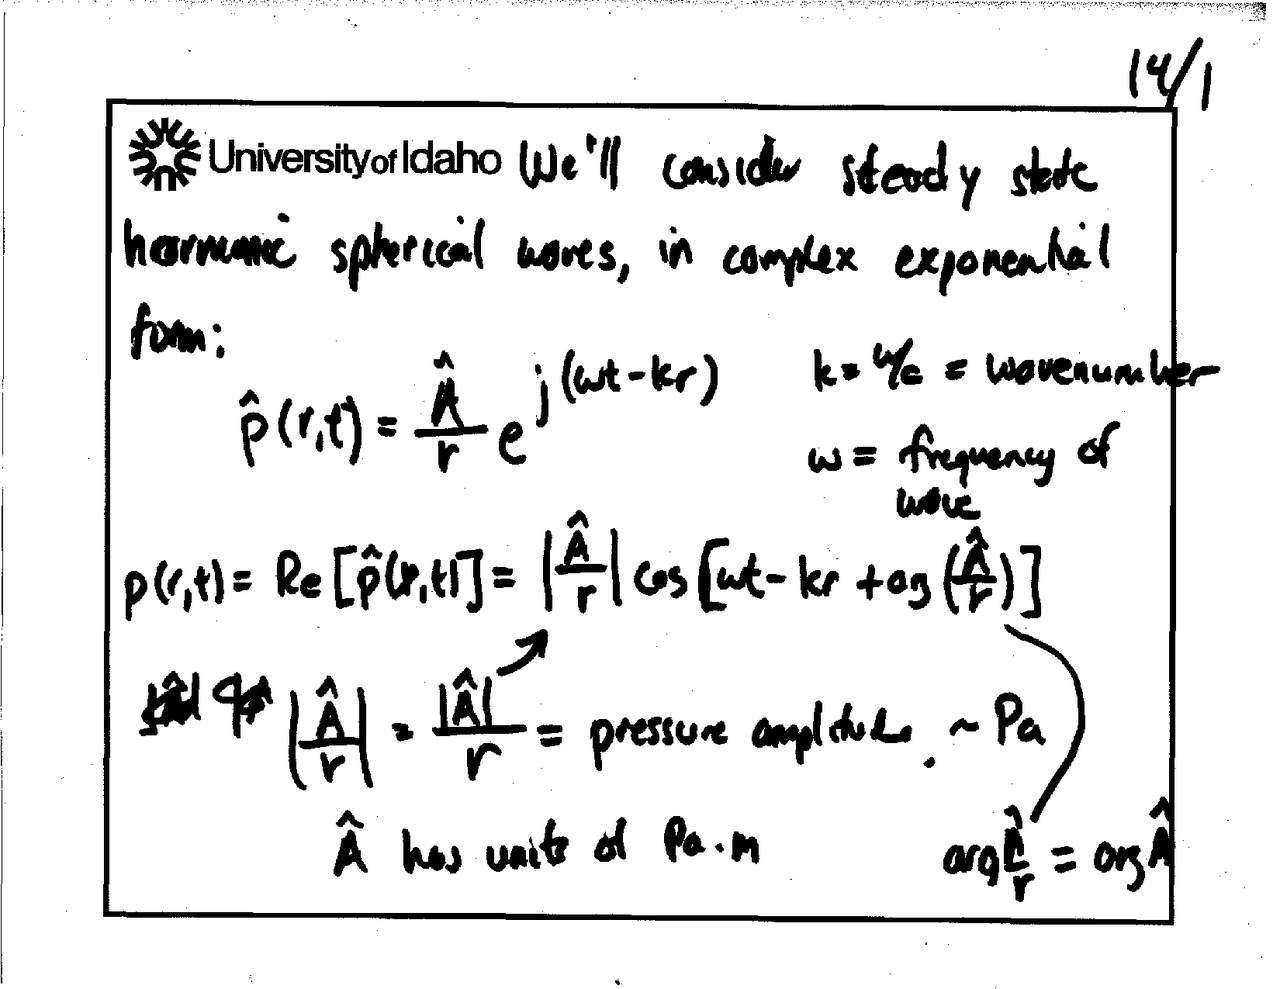 14/1
University of Idaho We'll consider steady state
harmonic spherical waves, in complex exponential
form:
p̂(r,t) = Â/r e^j(ωt-kr) k = ω/c = wavenumber
ω = frequency of
wave
p(r,t) = Re[p̂(r,t)] = |Â/r| cos[ωt - kr + arg(Â/r)]
|Â/r| = |Â|/r = pressure amplitude. ~ Pa
 has units of Pa·m arg Â/r = arg Â